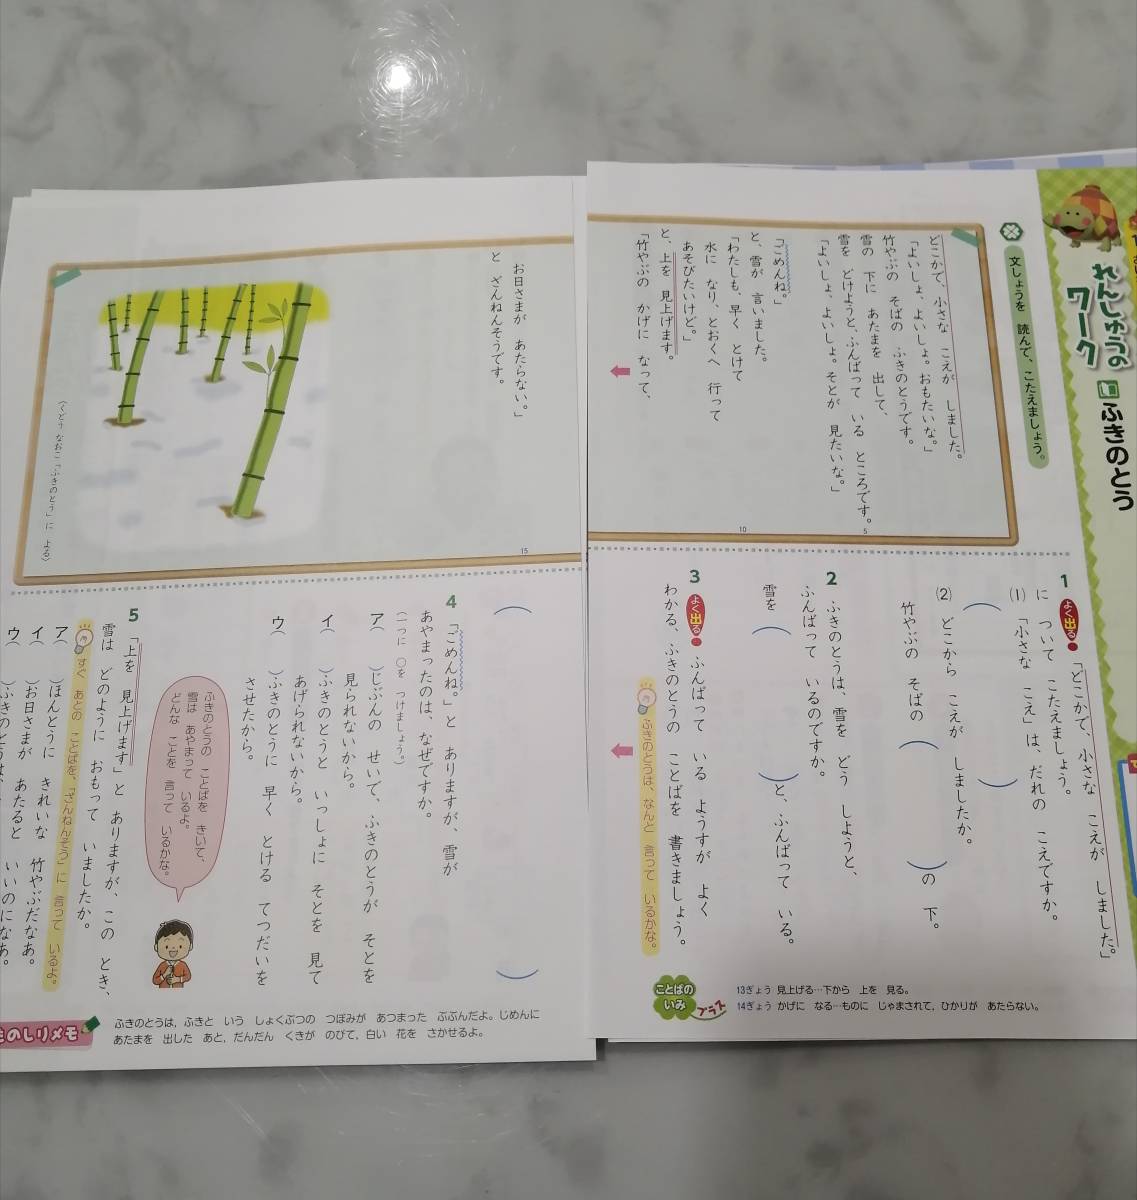 れんしゅうの
ワーク
ふきのとう
文しょうを 読んで、こたえましょう。
どこかで、小さな こえが しました。
「よいしょ、よいしょ。おもたいな。」
竹やぶの そばの ふきのとうです。
雪の 下に あたまを 出して、
雪を どけようと、ふんばって いる ところです。
「よいしょ、よいしょ。そとが 見たいな。」
「ごめんね。」
と、雪が 言いました。
「わたしも、早く とけて
水に なり、とおくへ 行って
あそびたいけど。」
と、上を 見上げます。
「竹やぶの かげに なって、
お日さまが あたらない。」
と ざんねんそうです。
5
10
15
(くどう なおこ「ふきのとう」に よる)
1 よく出る 「どこかで、小さな こえが しました。」
に ついて こたえましょう。
(1) 「小さな こえ」は、だれの こえですか。
( )
(2) どこから こえが しましたか。
竹やぶの そばの ( )の 下。
2 ふきのとうは、雪を どう しようと、
ふんばって いるのですか。
雪を ( )と、ふんばって いる。
3 よく出る ふんばって いる ようすが よく
わかる、ふきのとうの ことばを 書きましょう。
ふきのとうは、なんと 言って いるかな。
( )
4 「ごめんね。」と ありますが、雪が
あやまったのは、なぜですか。
(一つに ○を つけましょう。)
ア( )じぶんの せいで、ふきのとうが そとを
見られないから。
イ( )ふきのとうと いっしょに そとを 見て
あげられないから。
ウ( )ふきのとうに 早く とける てつだいを
させたから。
ふきのとうの ことばを きいて、
雪は あやまって いるよ。
どんな ことを 言って いるかな。
5 「上を 見上げます」と ありますが、この とき、
雪は どのように おもって いましたか。
すぐ あとの ことばを、「ざんねんそう」に 言って いるよ。
ア( )ほんとうに きれいな 竹やぶだなあ。
イ( )お日さまが あたると いいのになあ。
ウ( )ふきのとうは、
ことばの
いみ
プラス
13ぎょう 見上げる…下から 上を 見る。
14ぎょう かげに なる…ものに じゃまされて,ひかりが あたらない。
ものしりメモ
ふきのとうは,ふきと いう しょくぶつの つぼみが あつまった ぶぶんだよ。じめんに
あたまを 出した あと,だんだん くきが のびて,白い 花を さかせるよ。